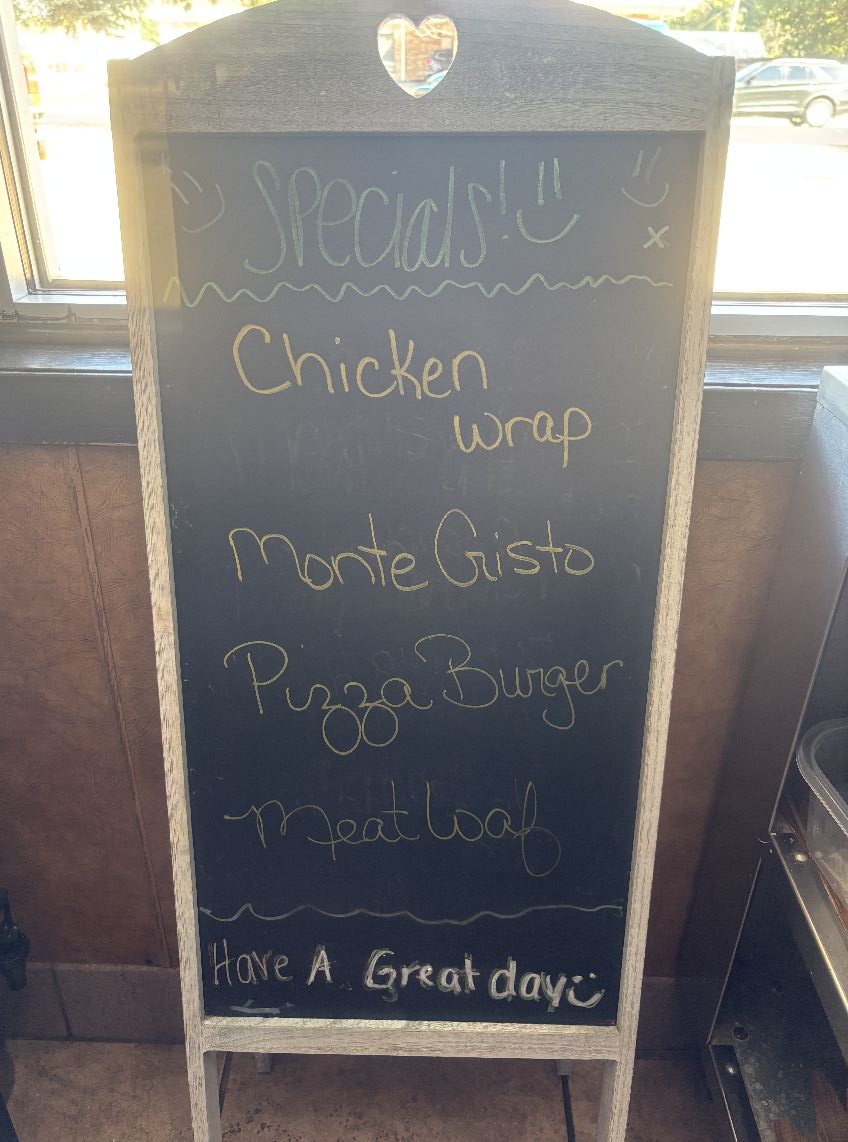 Specials!
Chicken
wrap
Monte Cristo
Pizza Burger
Meatloaf
Have A Great day